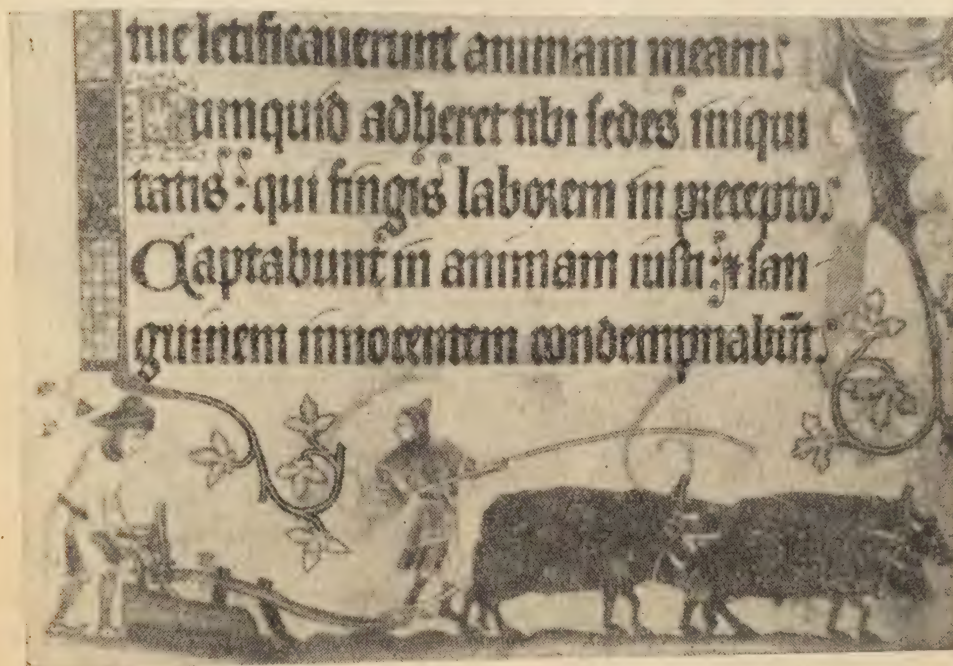 tue letificauerunt animam meam:
Numquid adheret tibi sedes iniqui
tatis: qui fingis laborem in precepto:
Captabunt in animam iusti: & san
guinem innocentem condempnabūt: